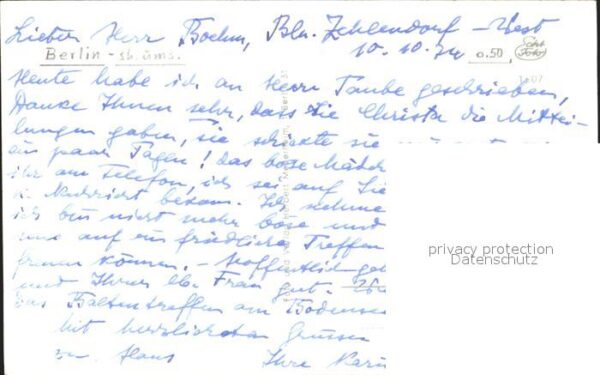 Lieber Herr Boehm, Bln. Zehlendorf-West
10.10.74
Berlin - a.50 Echt Foto
Heute habe ich an Herrn Taube geschrieben,
Danke Ihnen sehr, dass Sie Christa die Mittei-
lungen gaben, sie schickte sie
ein paar Tagen! das böse Mädch
ihr am Telefon, ich sei auf Sie
k. Nachricht bekam. Ich nehme
ich bin nicht mehr böse und
uns auf ein friedliches Treffen
freuen können. - Hoffentlich geh
und Ihrer lb. Frau gut.
das Baltentreffen am Bodensee
Mit herzlichsten Grüssen
Haus Ihre Karin
privacy protection
Datenschutz